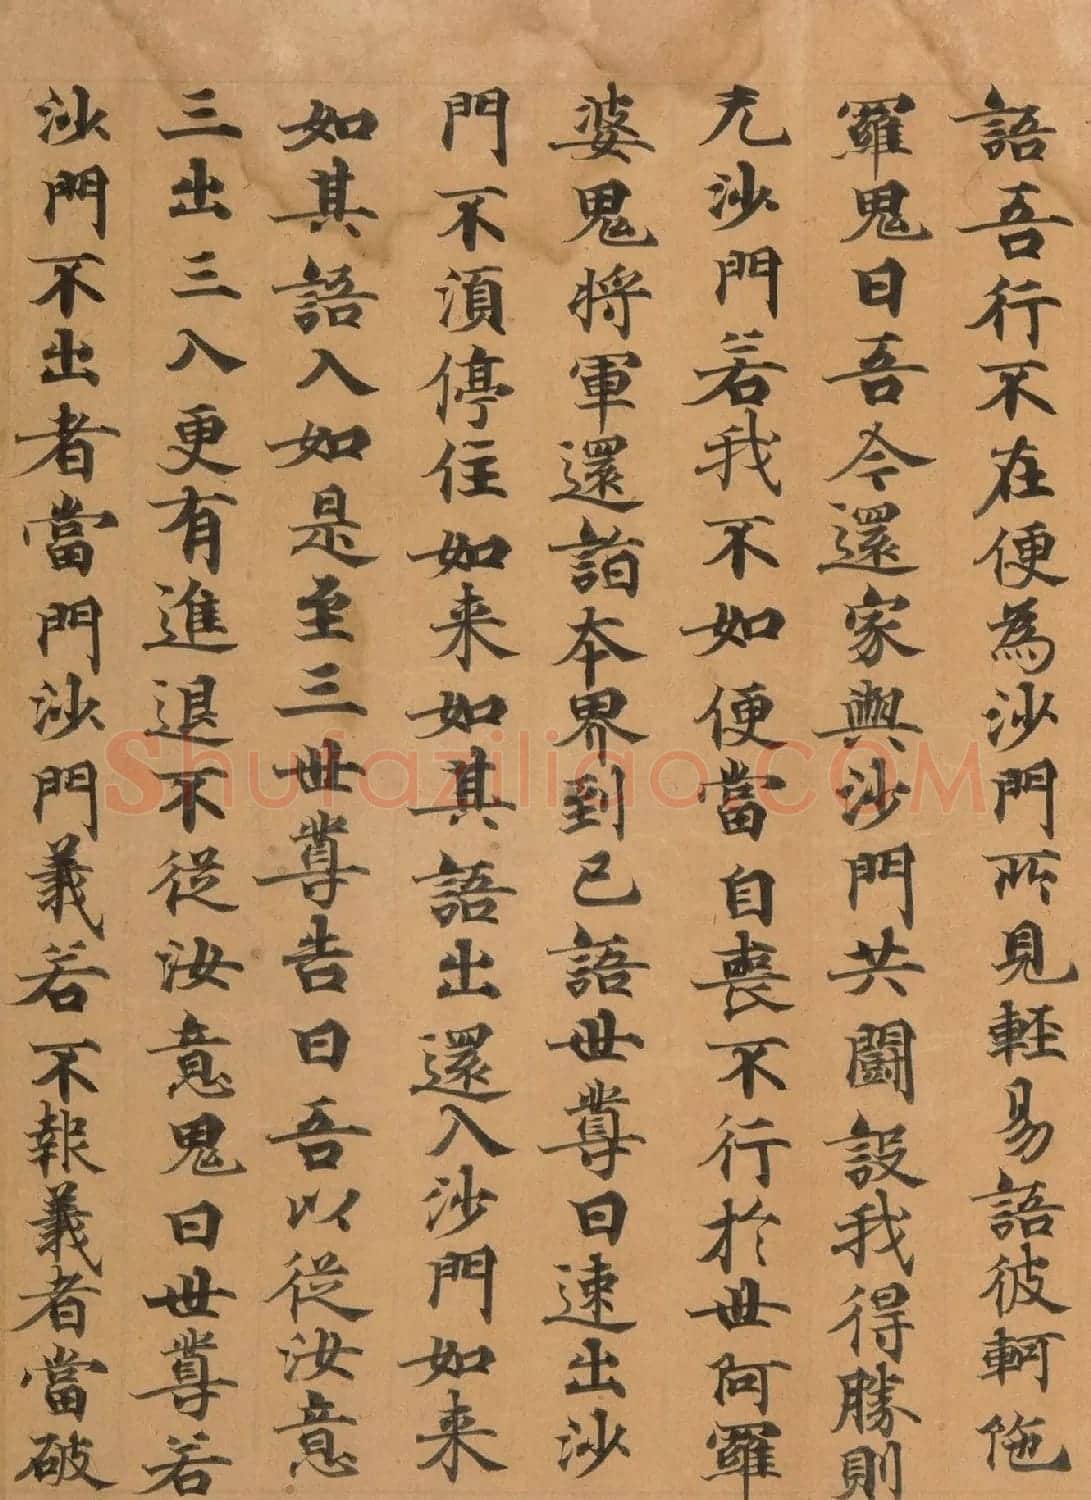 語吾行不在便為沙門所見輕易語彼軻陁
羅鬼曰吾今還家與沙門共鬪設我得勝則
无沙門若我不如便當自喪不行於世阿羅
婆鬼將軍還詣本界到已語世尊曰速出沙
門不湏停住如来如其語出還入沙門如来
如其語入如是至三世尊告曰吾以從汝意
三出三入更有進退不從汝意鬼曰世尊若
沙門不出者當門沙門義若不報義者當破
Shufaziliao.COM